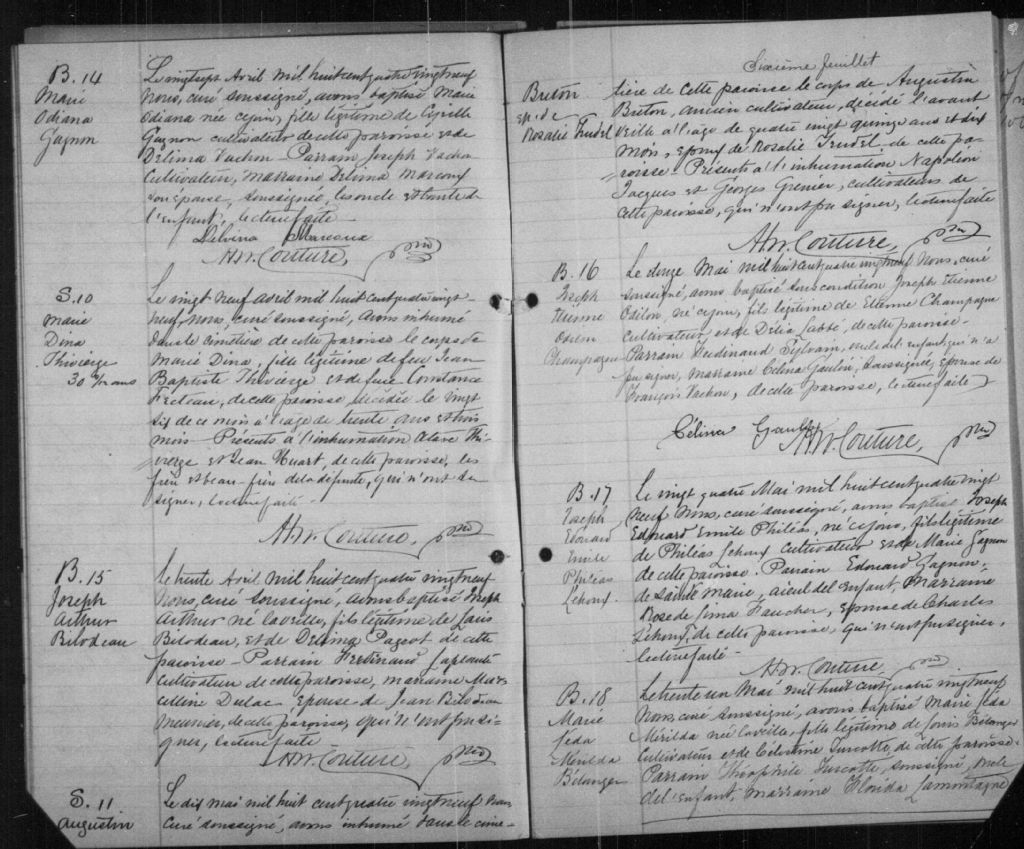 B. 14
Marie
Odiana
Gagnon
Le vingt sept Avril mil huit cent quatre vingt neuf
Nous, curé soussigné, avons baptisé Marie
Odiana née ce jour, fille légitime de Cyrille
Gagnon cultivateur de cette paroisse et de
Délima Vachon. Parrain Joseph Vachon
Cultivateur, Marraine Delvina Marcoux
son épouse, soussignée, les oncle et tante de
l'enfant, lecture faite
Delvina Marcoux
Couture, ptre
S. 10
Marie
Dina
Thivierge
30 ans
Le vingt neuf avril mil huit cent quatre vingt
neuf, Nous, curé soussigné, avons inhumé
dans le cimetière de cette paroisse le corps de
Marie Dina, fille légitime de feu Jean
Baptiste Thivierge et de feue Constance
Fecteau, de cette paroisse, décédée le vingt
six de ce mois à l'âge de trente ans et trois
mois - Présents à l'inhumation Thi-
vierge et Jean Huart, de cette paroisse, les
frère et beau-frère de la défunte, qui n'ont su
signer, lecture faite -
Couture, ptre
B. 15
Joseph
Arthur
Bilodeau
Le trente Avril mil huit cent quatre vingt neuf
Nous, curé soussigné, avons baptisé Joseph
Arthur né la veille, fils légitime de Louis
Bilodeau, et de Delima Pageot de cette
paroisse - Parrain Ferdinand Laplante
cultivateur de cette paroisse, marraine Mar-
celline Dulac épouse de Jean Bilodeau
meunier, de cette paroisse, qui n'ont pu si-
gner, lecture faite
Couture, ptre
S. 11
Augustin
Le dix mai mil huit cent quatre vingt neuf Nous
Curé soussigné, avons inhumé dans le cime-
Sixième feuillet
Breton
ép. de
Rosalie Trudel
tière de cette paroisse le corps de Augustin
Breton, ancien cultivateur, décédé l'avant
veille à l'âge de quatre vingt quinze ans et dix
mois, époux de Rosalie Trudel, de cette pa-
roisse - Présents à l'inhumation Napoléon
Jacques et Georges Grenier, cultivateurs de
cette paroisse, qui n'ont pu signer, lecture faite
Couture, ptre
B. 16
Joseph
Etienne
Odilon
Champagne
Le douze Mai mil huit cent quatre vingt neuf Nous, curé
soussigné, avons baptisé sous condition Joseph Etienne
Odilon, né ce jour, fils légitime de Etienne Champagne
Cultivateur et de Délia Labbé, de cette paroisse -
Parrain Ferdinand Sylvain, oncle de l'enfant qui n'a
pu signer, marraine Célina Gaulin, soussignée, épouse de
François Vachon, de cette paroisse, lecture faite
Célina Gaulin
Couture, ptre
B. 17
Joseph
Edouard
Emile
Philéas
Lehoux
Le vingt quatre Mai mil huit cent quatre vingt
neuf Nous, curé soussigné, avons baptisé Joseph
Edouard Emile Philéas, né ce jour, fils légitime
de Philéas Lehoux cultivateur et de Marie Gagnon
de cette paroisse. Parrain Edouard Gagnon,
de Sainte Marie, aieul del enfant, Marraine
Rose de Lima Faucher, épouse de Charles
Lehoux, de cette paroisse, qui n'ont pu signer,
lecture faite -
Couture ptre
B. 18
Marie
Léda
Mérilda
Bélanger
Le trente un Mai mil huit cent quatre vingt neuf
Nous, curé soussigné, avons baptisé Marie Léda
Mérilda née la veille, fille légitime de Louis Bélanger
Cultivateur et de Célestine Turcotte, de cette paroisse -
Parrain Théophile Turcotte, soussigné, oncle
del'enfant, Marraine Florida Lamontagne